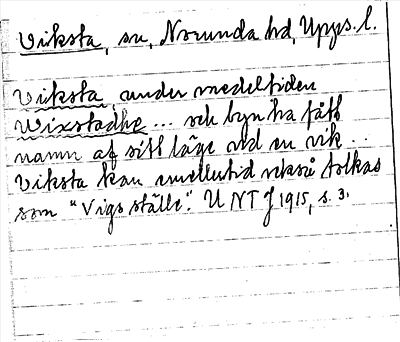 Viksta, sn, Norunda hd, Upps. l.
Viksta, under medeltiden
Wixstadhe ... och byn ha fått
namn af sitt läge vid en vik ..
Viksta kan emellertid också tolkas
som "Vigs ställe". UNT J 1915, s. 3.